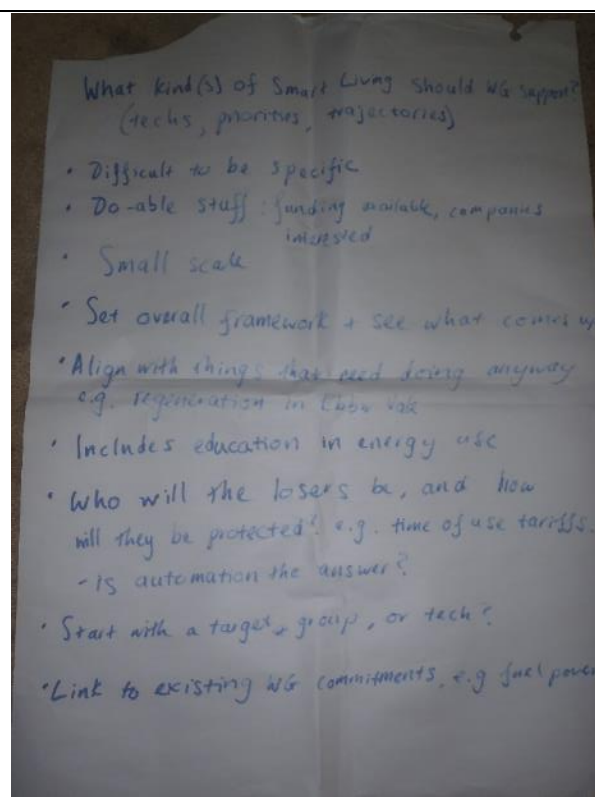 What kind(s) of Smart Living should WG support?
(techs, priorities, trajectories)
• Difficult to be specific
• Do-able stuff : funding available, companies
interested
• Small scale
• Set overall framework + see what comes up
• Align with things that need doing anyway
e.g. regeneration in Ebbw Vale
• Includes education in energy use
• Who will the losers be, and how
will they be protected? e.g. time of use tariffs.
- Is automation the answer?
• Start with a target, group, or tech?
• Link to existing WG commitments, e.g fuel